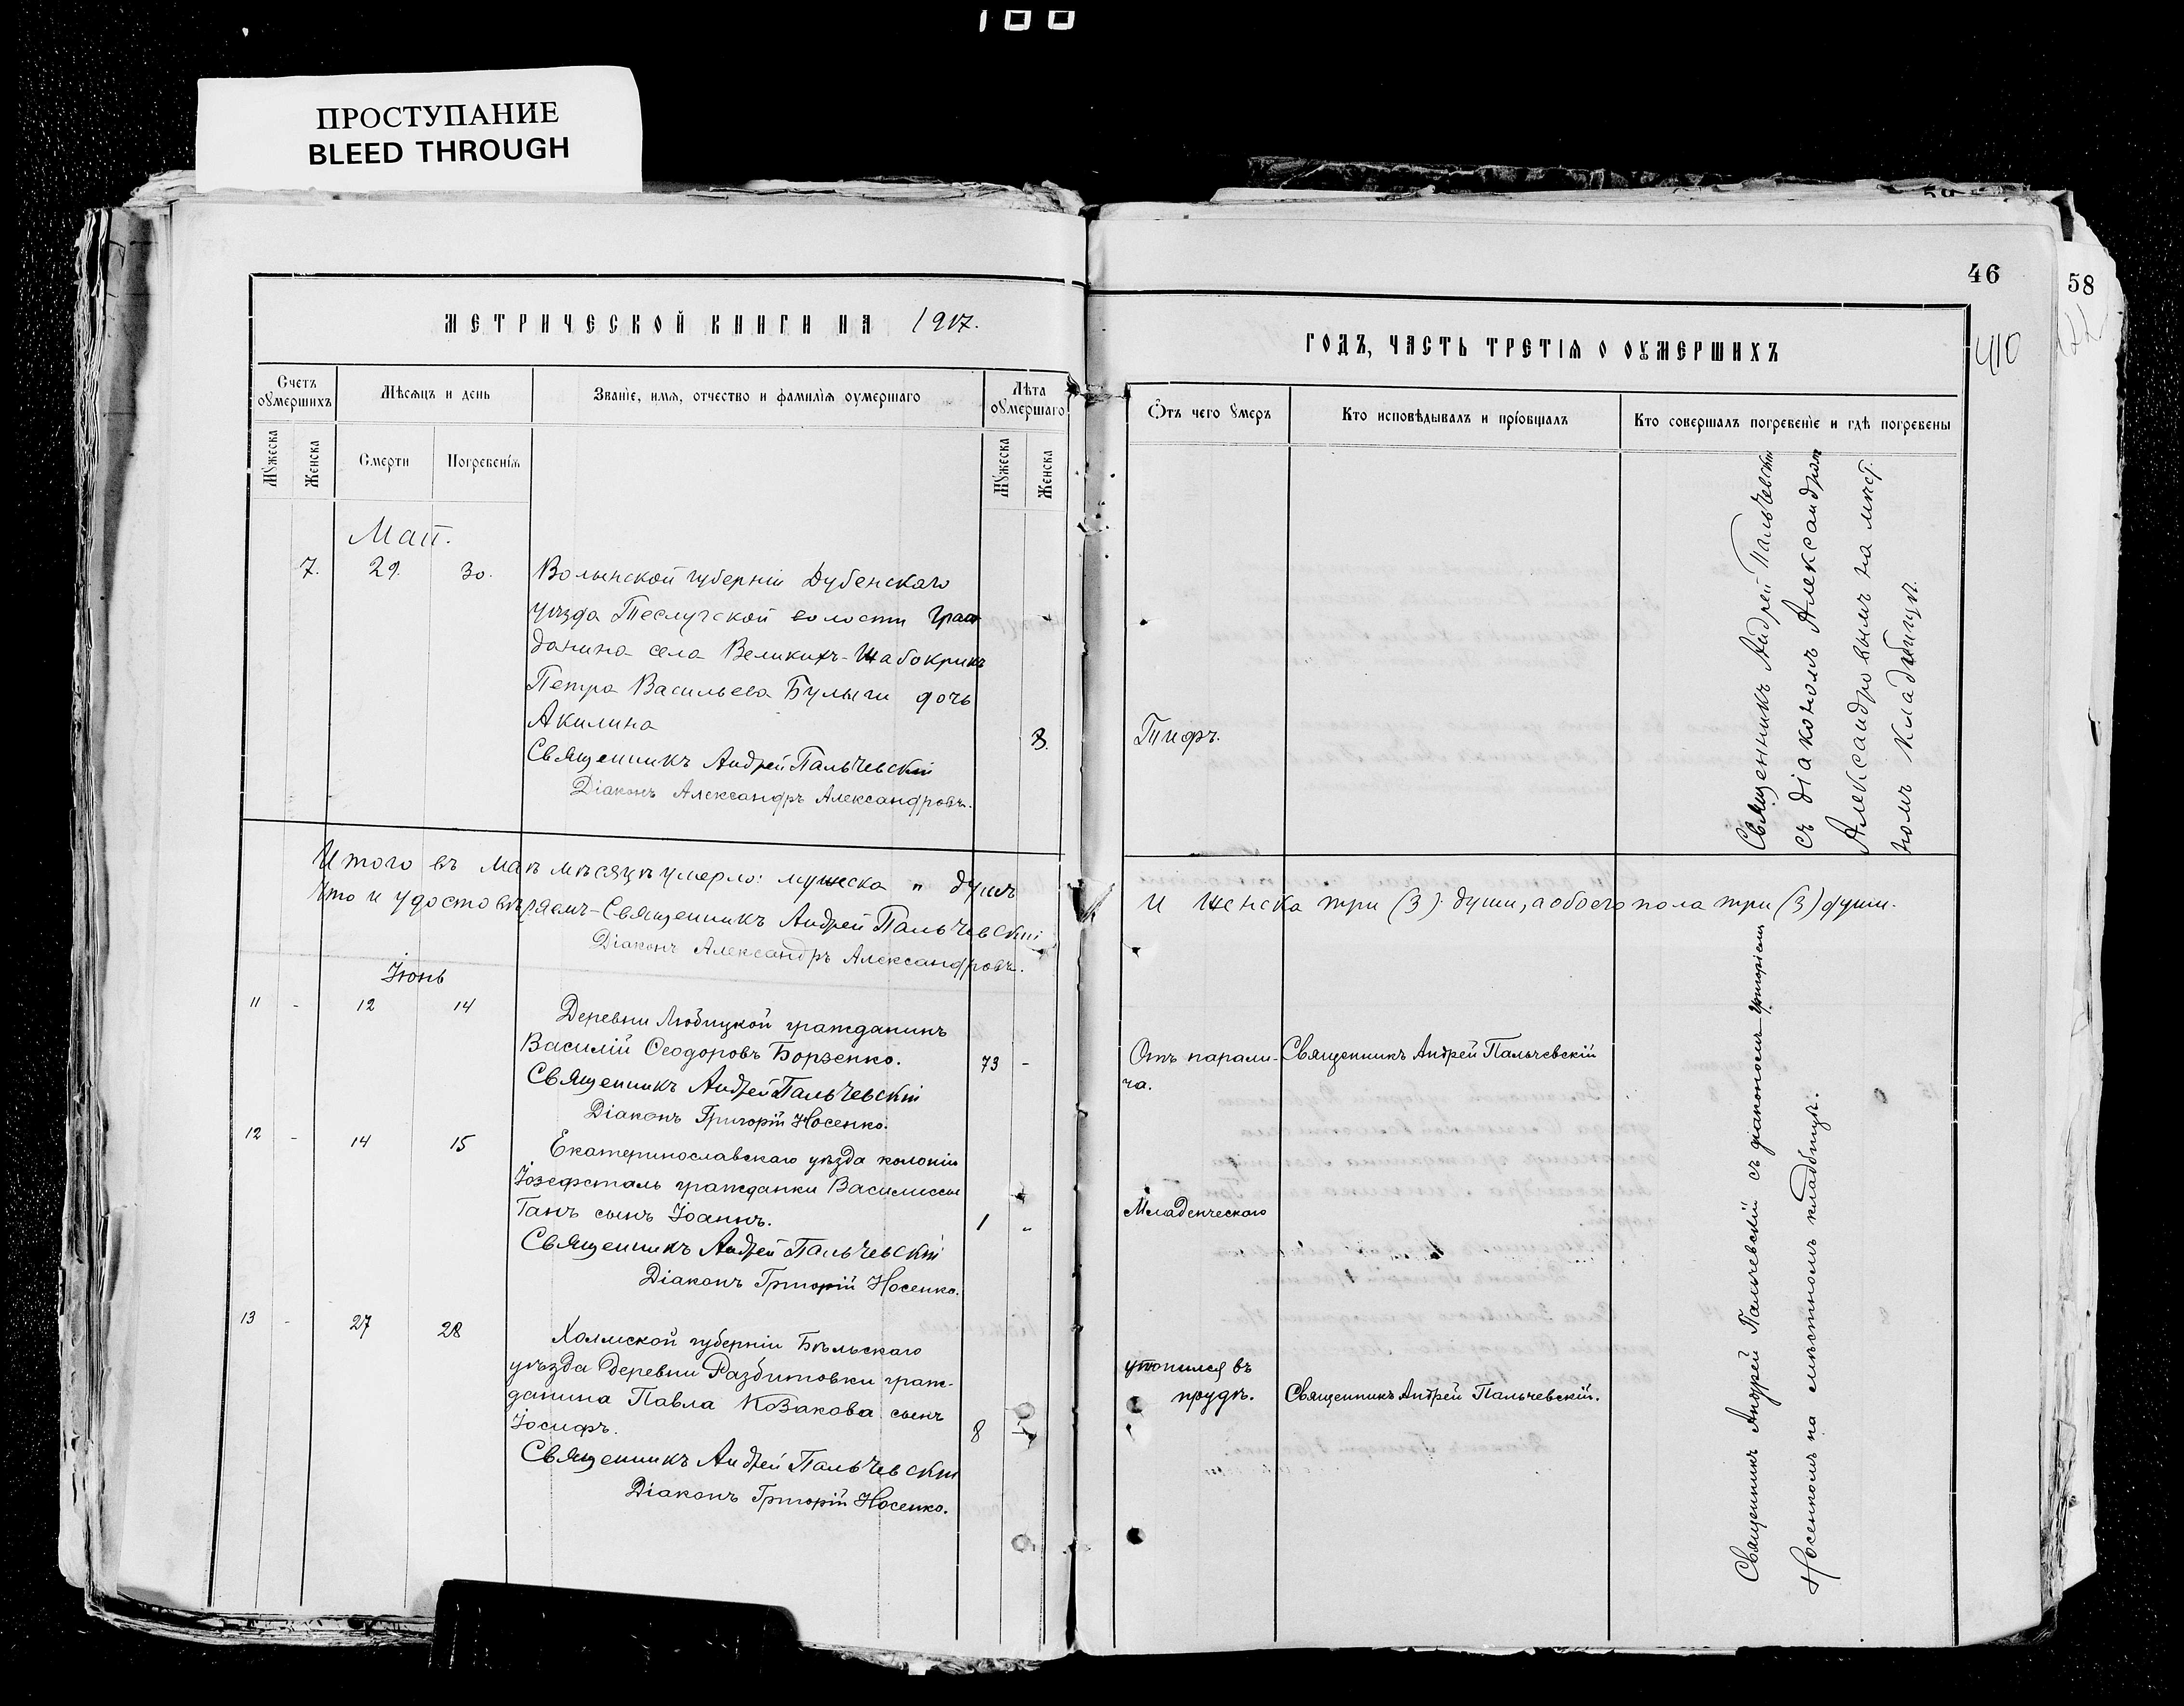 100
ПРОСТУПАНИЕ
BLEED THROUGH
МЕТРИЧЕСКОЙ КНИГИ НА 1917.
Счетъ оумершихъ
Мѣсяцъ и день
Званіе, имя, отчество и фамилія оумершаго
Лѣта оумершаго
Мужеска
Женска
Смерти
Погребенія
Мужеска
Женска
Май.
7.
29.
30.
Волынской губерніи Дубенскаго
уѣзда Теслугской волости граж
данина села Великихъ-Жабокрикъ
Петра Васильева Булыги дочь
Акилина
3.
Священникъ Андрей Пальчевскій
Діаконъ Александръ Александровъ.
Итого въ маѣ мѣсяцѣ умерло: мужеска " душъ
Что и удостовѣряемъ - Священникъ Андрей Пальчевскій
Діаконъ Александръ Александровъ.
Іюнь
11
-
12
14
Деревни Любицкой гражданинъ
Василій Ѳеодоровъ Борзенко.
73
-
Священникъ Андрей Пальчевскій
Діаконъ Григорій Носенко.
12
-
14
15
Екатеринославскаго уѣзда колоніи
Іозефсталь гражданки Василиссы
Ганъ сынъ Іоаннъ.
1
"
Священникъ Андрей Пальчевскій
Діаконъ Григорій Носенко.
13
-
27
28
Холмской губерніи Бѣльскаго
уѣзда деревни Разбитовки граж-
данина Павла Козакова сынъ
Іосифъ.
8
Священникъ Андрей Пальчевскій
Діаконъ Григорій Носенко.
46
58
410
ГОДЪ, ЧАСТЬ ТРЕТІЯ О ОУМЕРШИХЪ
Ѿтъ чего умеръ
Кто исповѣдывалъ и пріобщалъ
Кто совершалъ погребеніе и гдѣ погребены
Тифъ.
Священникъ Андрей Пальчевскій
съ діакономъ Александромъ
Александровымъ на мѣст
номъ кладбищѣ.
и женска три (3) души, а обоего пола три (3) души.
Отъ парали-
ча.
Священникъ Андрей Пальчевскій
Младенческаго
утопился въ
прудѣ.
Священникъ Андрей Пальчевскій.
Священникъ Андрей Пальчевскій съ діакономъ Григоріемъ
Носенкомъ на мѣстномъ кладбищѣ.